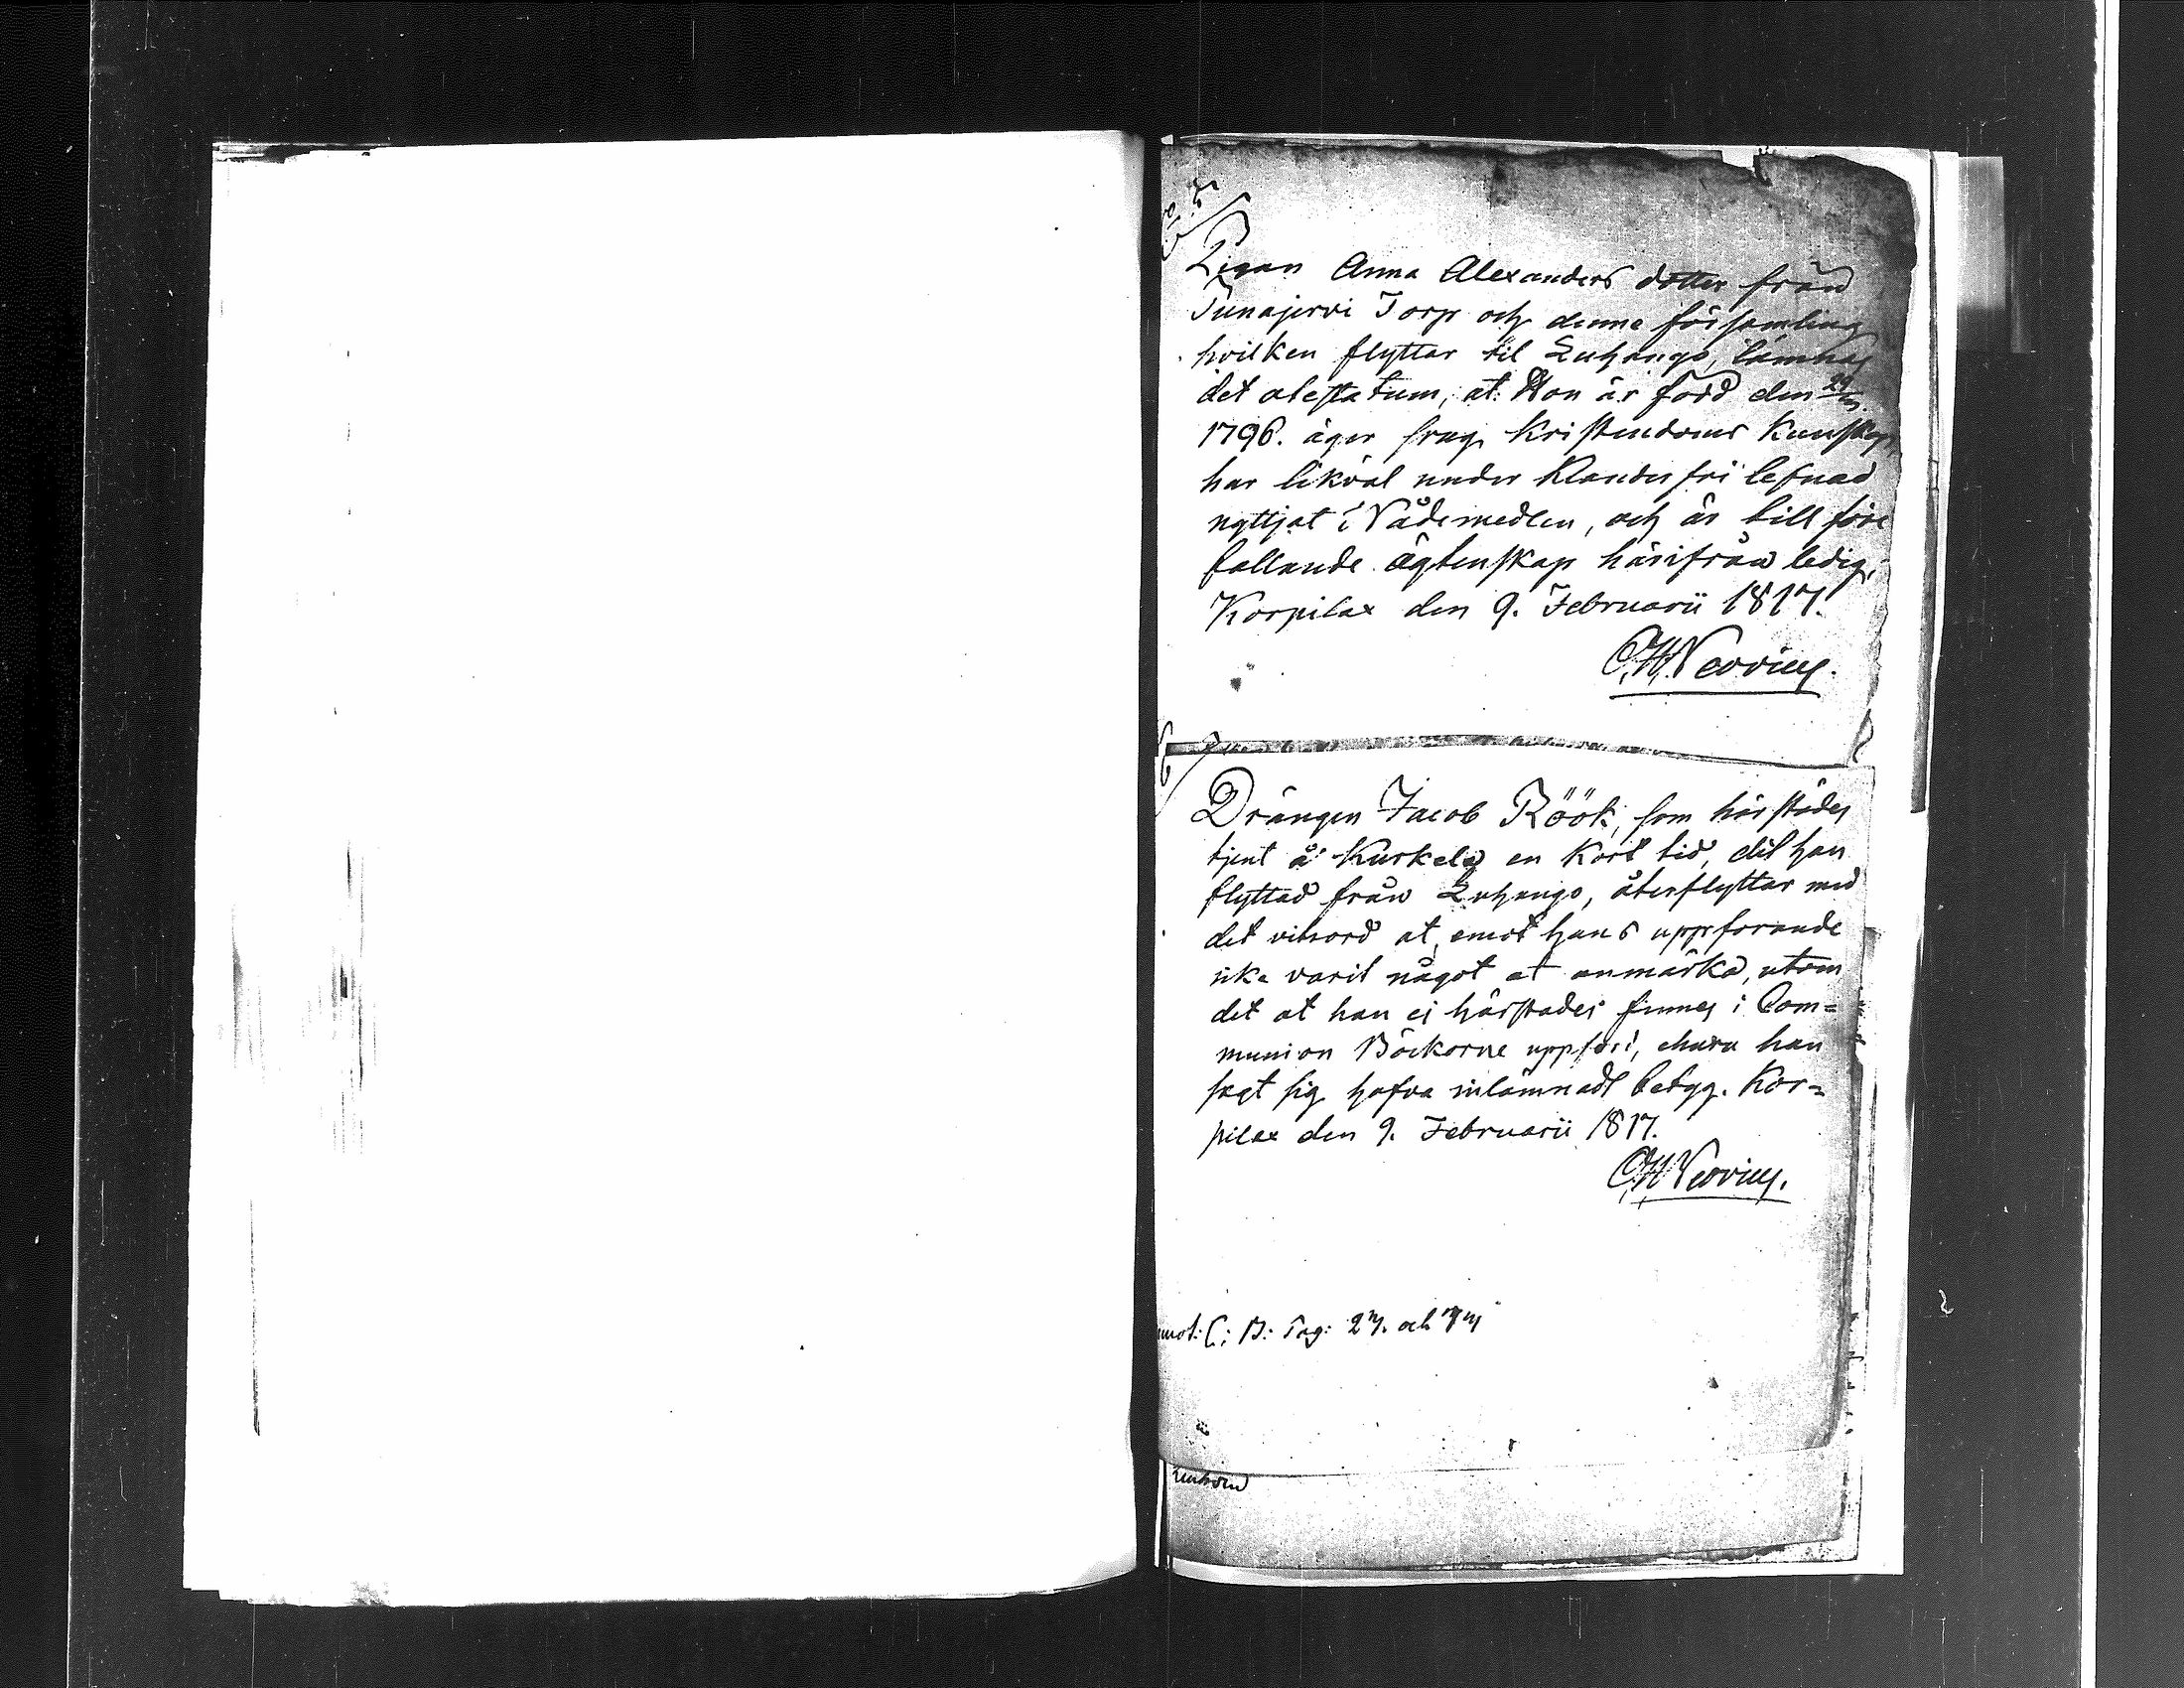 Pigan Anna Alexanders dotter från
Tunajervi Torp och denne församling
hvilken flyttar til Luhango, lämnas
det atestatum, at Hon är född den
1796. äger svag Kristendoms Kunskap,
har likväl under Klanderfri lefnad
nyttjat Nådemedlen, och är till före
fallande ägtenskap härifrån ledig.
Korpilax den 9. Februarii 1817.
C.H. Neovius.
Drängen Jacob Röök, som härstädes
tjent å Kurkela en Kort tid, dit han
flyttad från Luhango, återflyttar med
det vitsord at, emot hans uppförande
icke varit något at anmärka, utom
det at han ej härstädes finnes i Com=
munion Böckerne uppförd, ehuru han
sagt sig hafva inlämnadt betyg. Kor=
pilax den 9. Februarii 1817.
C.H. Neovius.
C: B: Pag: 27. och